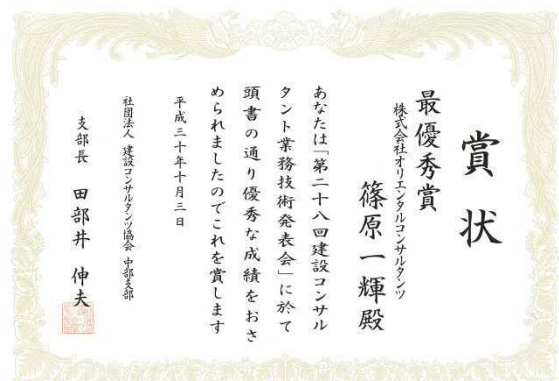 賞状
最優秀賞
株式会社オリエンタルコンサルタンツ
篠原一輝殿
あなたは「第二十八回建設コンサル
タント業務技術発表会」に於て
頭書の通り優秀な成績をおさ
められましたのでこれを賞します
平成三十年十月三日
社団法人 建設コンサルタンツ協会 中部支部
支部長 田部井伸夫